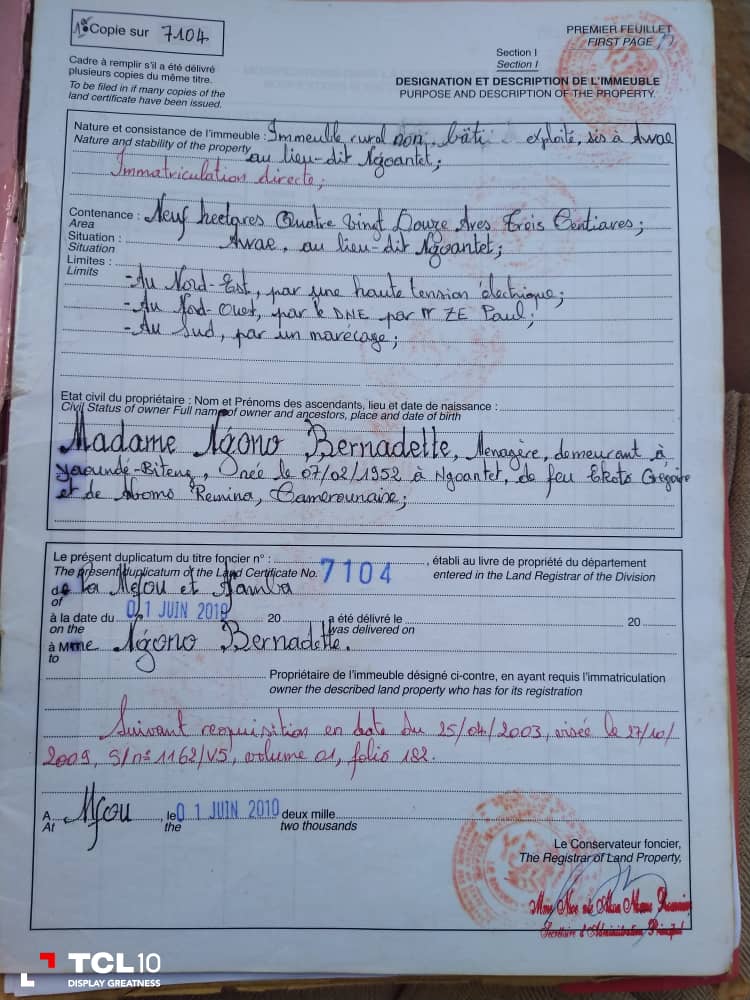 1e Copie sur 7104
PREMIER FEUILLET
FIRST PAGE
Section I
Section I
Cadre à remplir s'il a été délivré
plusieurs copies du même titre.
To be filed in if many copies of the
land certificate have been issued.
DESIGNATION ET DESCRIPTION DE L'IMMEUBLE
PURPOSE AND DESCRIPTION OF THE PROPERTY.
Nature et consistance de l'immeuble : Immeuble rural non bâti exploité, sis à Awae
Nature and stability of the property au lieu-dit Ngoantet;
Immatriculation directe;
Contenance : Neuf hectares Quatre Vingt Douze Ares Trois Centiares;
Area
Situation : Awae, au lieu-dit Ngoantet;
Situation
Limites :
Limits
-Au Nord-Est, par une haute tension électrique;
-Au Nord-Ouest, par le DNE par Mr ZE Paul;
-Au Sud, par un marécage;
Etat civil du propriétaire : Nom et Prénoms des ascendants, lieu et date de naissance :
Civil Status of owner Full name of owner and ancestors, place and date of birth
Madame Ngono Bernadette, Menagère, demeurant à
Yaoundé-Biteng, née le 07/02/1952 à Ngoantet, de feu Ekoto Grégoire
et de Abomo Remina, Camerounaise;
Le présent duplicatum du titre foncier n° : , établi au livre de propriété du département
The présent duplicatum of the Land Certificate No. 7104 entered in the Land Registrar of the Division
de La Mefou et Afamba
of
à la date du 01 JUIN 2010 20 a été délivré le 20
on the was delivered on
à Mme Ngono Bernadette.
to
Propriétaire de l'immeuble désigné ci-contre, en ayant requis l'immatriculation
owner the described land property who has for its registration
Suivant requisition en date du 25/04/2003, visée le 27/10/
2009, S/n° 1162/V5, volume 01, folio 182.
A Mfou , le 01 JUIN 2010 deux mille
At the two thousands
Le Conservateur foncier,
The Registrar of Land Property,
Secrétaire d'Administration Principal
TCL10
DISPLAY GREATNESS